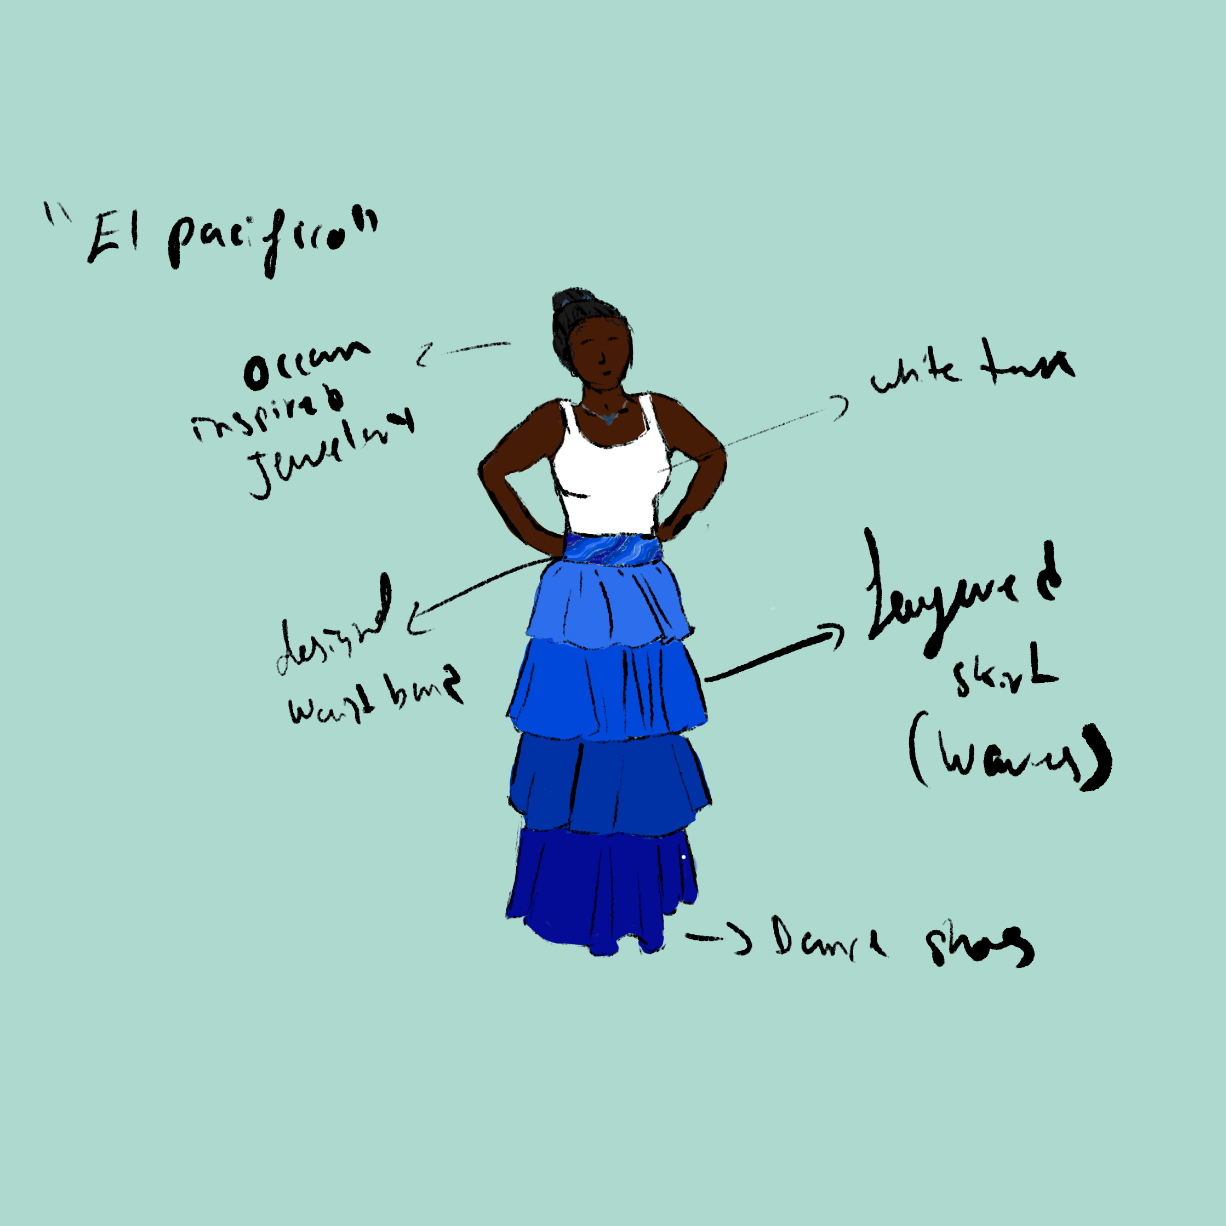 "El pacifico"
Ocean
inspired
Jewelery
white tank
designed
waist band
Layered
skirt
(waves)
Dance shoes